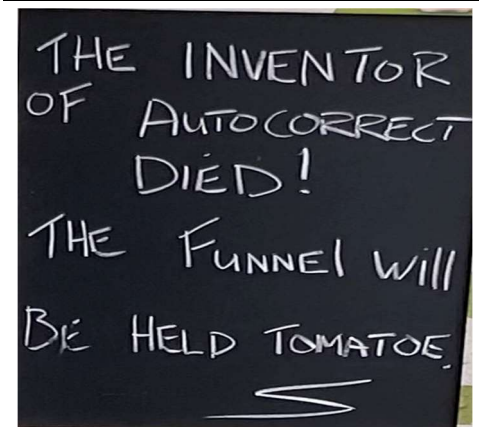 THE INVENTOR
OF AUTOCORRECT
DIED!
THE FUNNEl Will
BE HELD TOMATOE.